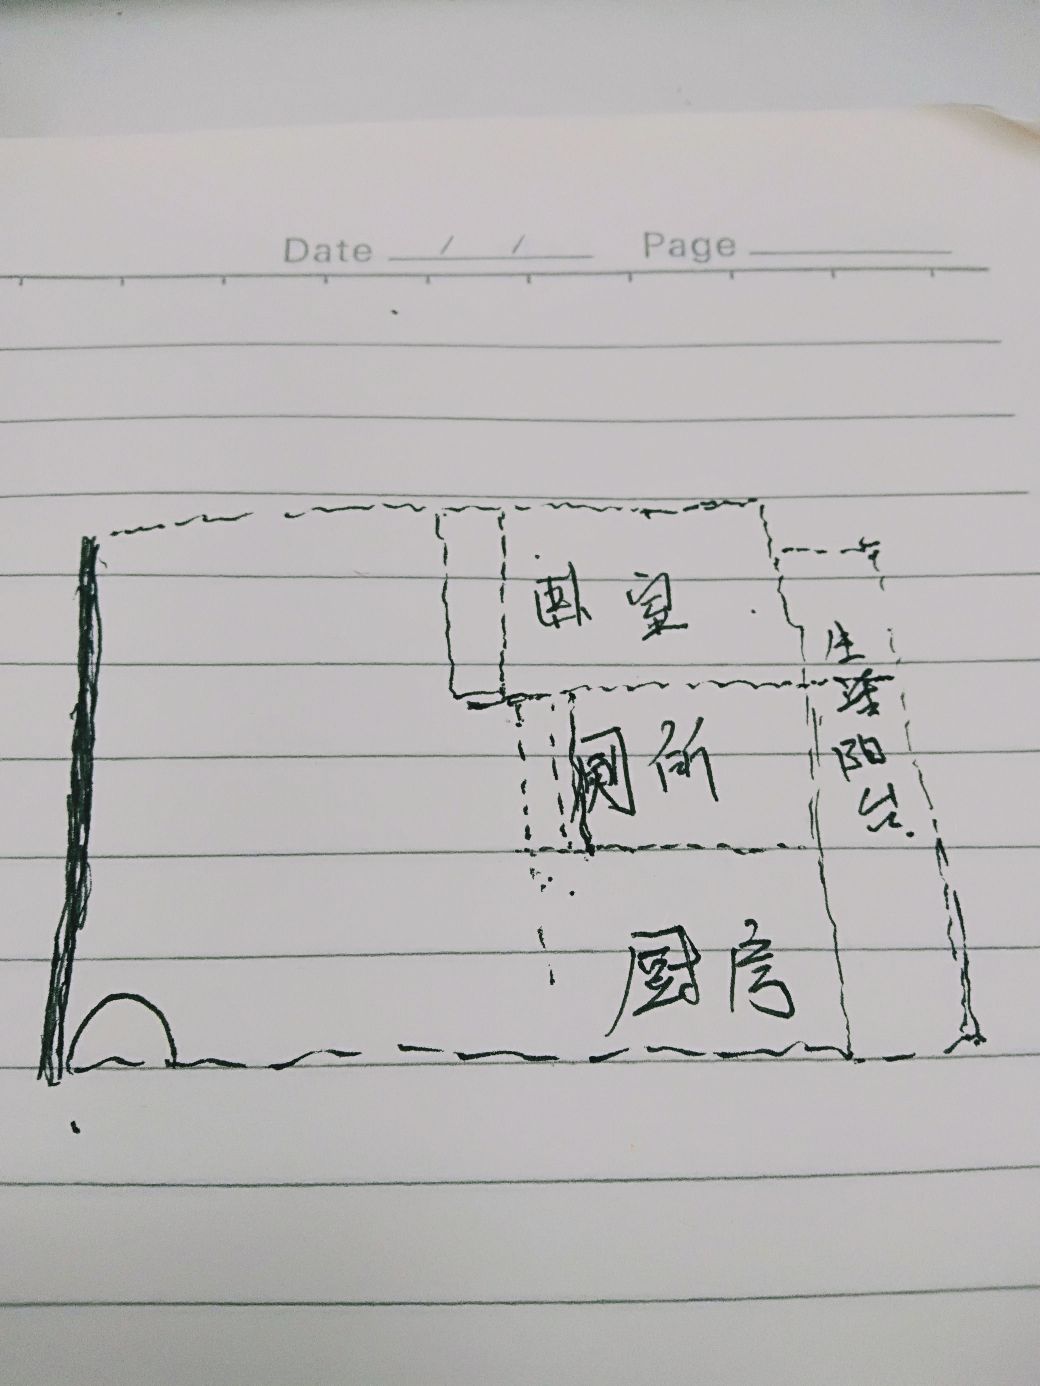 Date / / Page
卧室
生活阳台
厕所
厨房